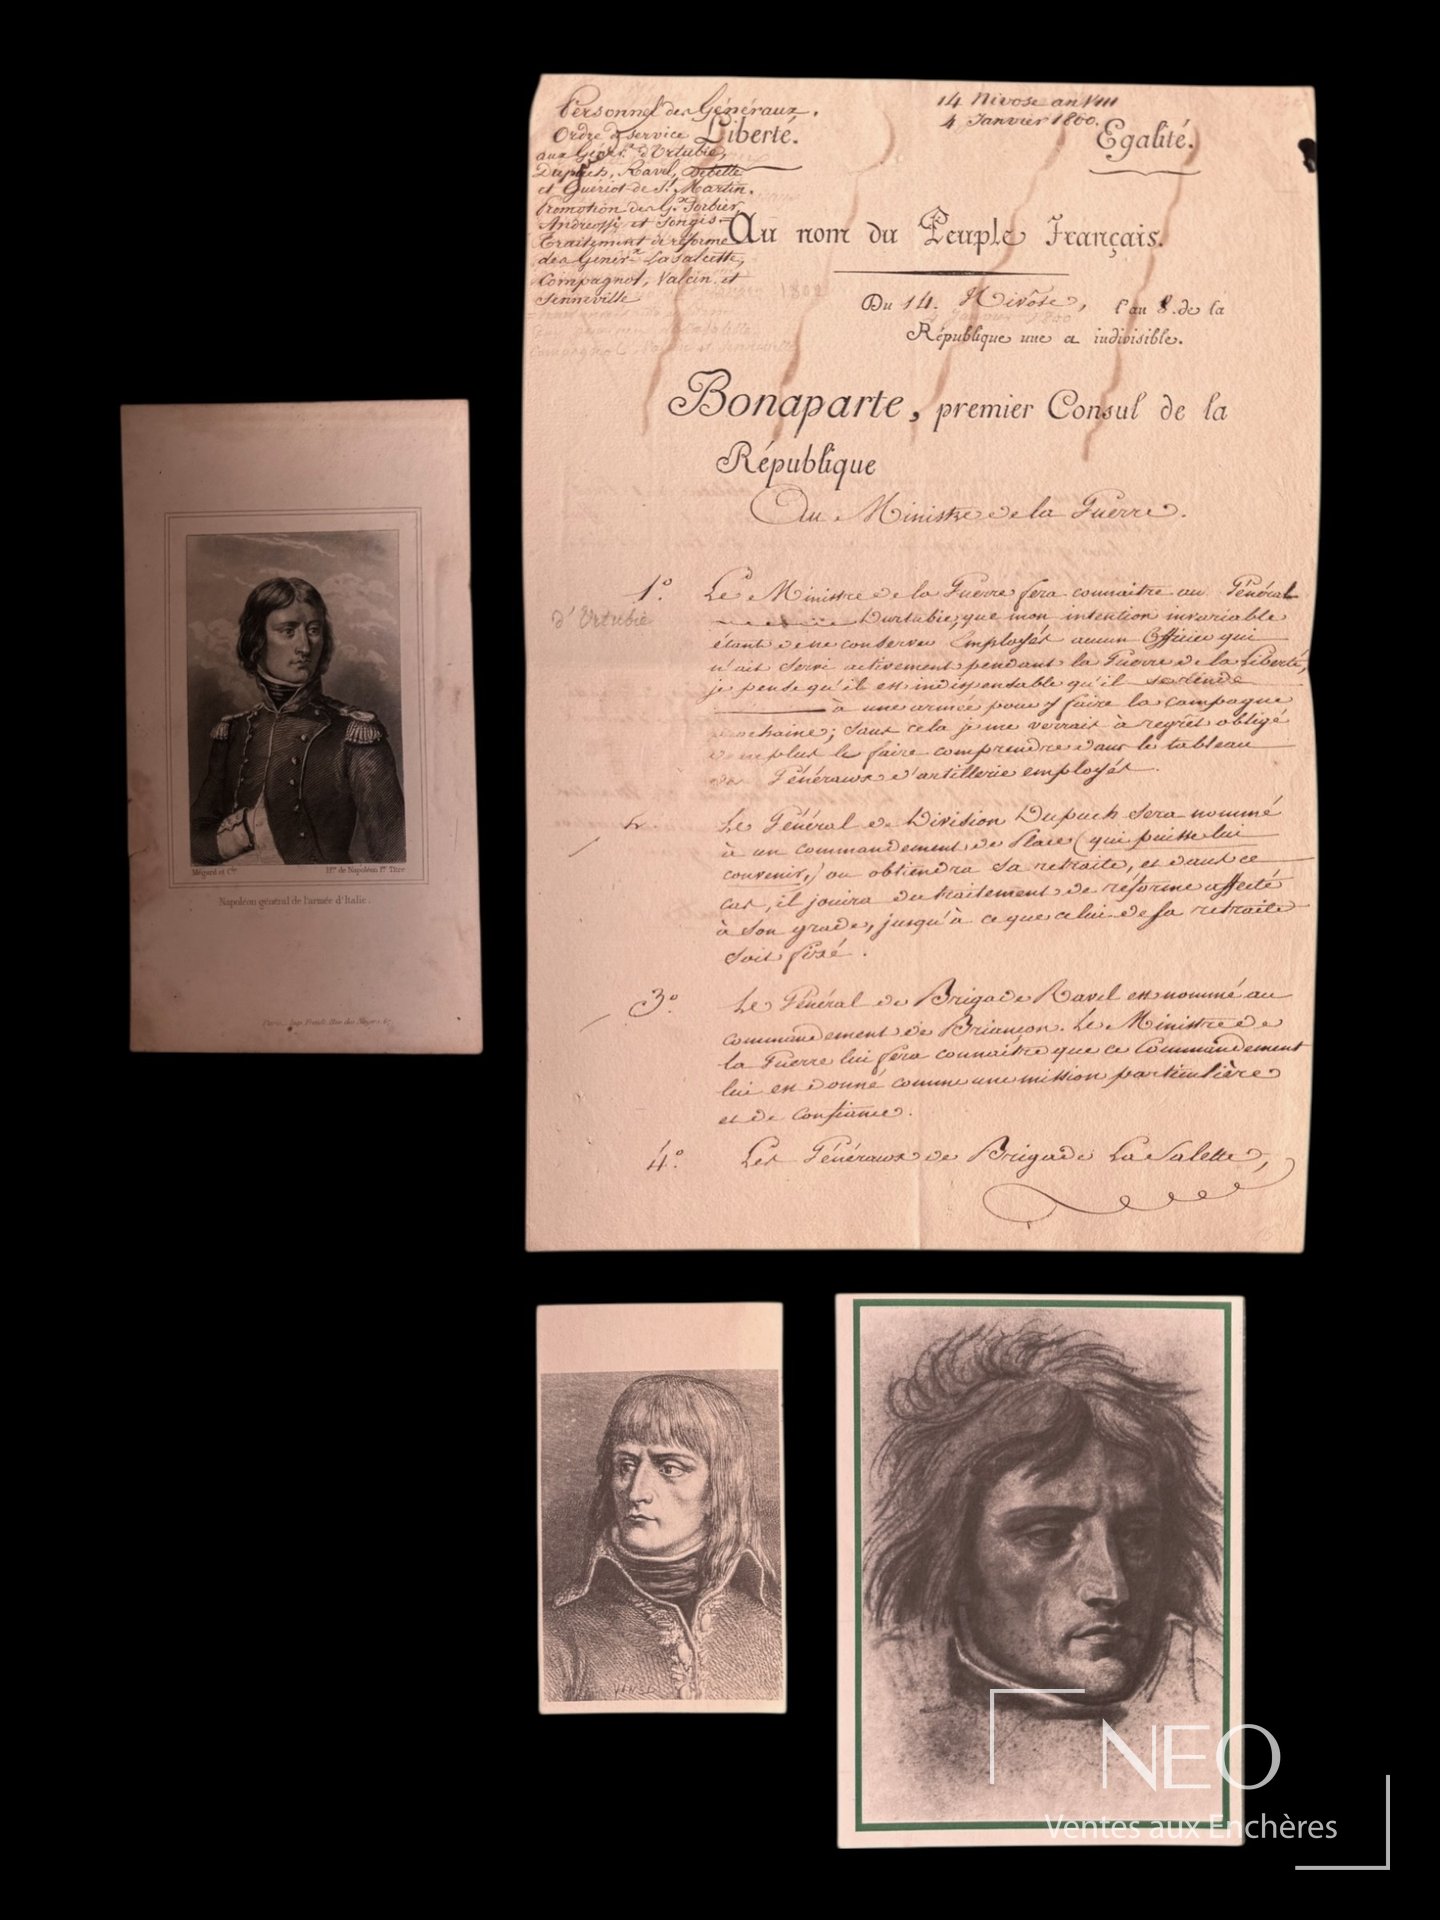 Personnel des Généraux.
Ordre de service
aux Génér.x d'Urtubie,
Dupuch, Ravel, Debelle
et Guériot de St. Martin.
Promotion des G.x Sorbier,
Andréossi et Songis.
Traitement de réforme
des Génér.x La Salcette,
Compagnol, Valcin et
Senneville
14 Nivose an VIII
4 Janvier 1800.
Liberté.
Egalité.
Au nom du Peuple Français.
Du 14. Nivôse, l'an 8. de la
République une et indivisible.
Bonaparte, premier Consul de la
République
Au Ministre de la Guerre.
d'Urtubie
1.° Le Ministre de la Guerre fera connaitre au Général
Durtubie, que mon intention invariable
étant de ne conserver Employés aucun Officier qui
n'ait servi activement pendant la Guerre de la Liberté,
je pense qu'il est indispensable qu'il se rende
à une armée pour y faire la campagne
prochaine; sans cela je me verrais à regret obligé
de ne plus le faire comprendre dans le tableau
des Généraux d'artillerie employés.
Le Général de Division Dupuch sera nommé
à un commandement de Place (qui puisse lui
convenir,) ou obtiendra sa retraite, et dans ce
cas, il jouira du traitement de réforme affecté
à son grade, jusqu'à ce que celui de sa retraite
soit fixé.
3.° Le Général de Brigade Ravel est nommé au
commandement de Briançon. Le Ministre de
la Guerre lui fera connaître que ce Commandement
lui est donné comme une mission particulière
et de confiance.
4.° Les Généraux de Brigade La Salette,
Mégard et Cie.
Hre. de Napoléon Ier. Titre
Napoléon général de l'armée d'Italie.
NEO
Ventes aux Enchères